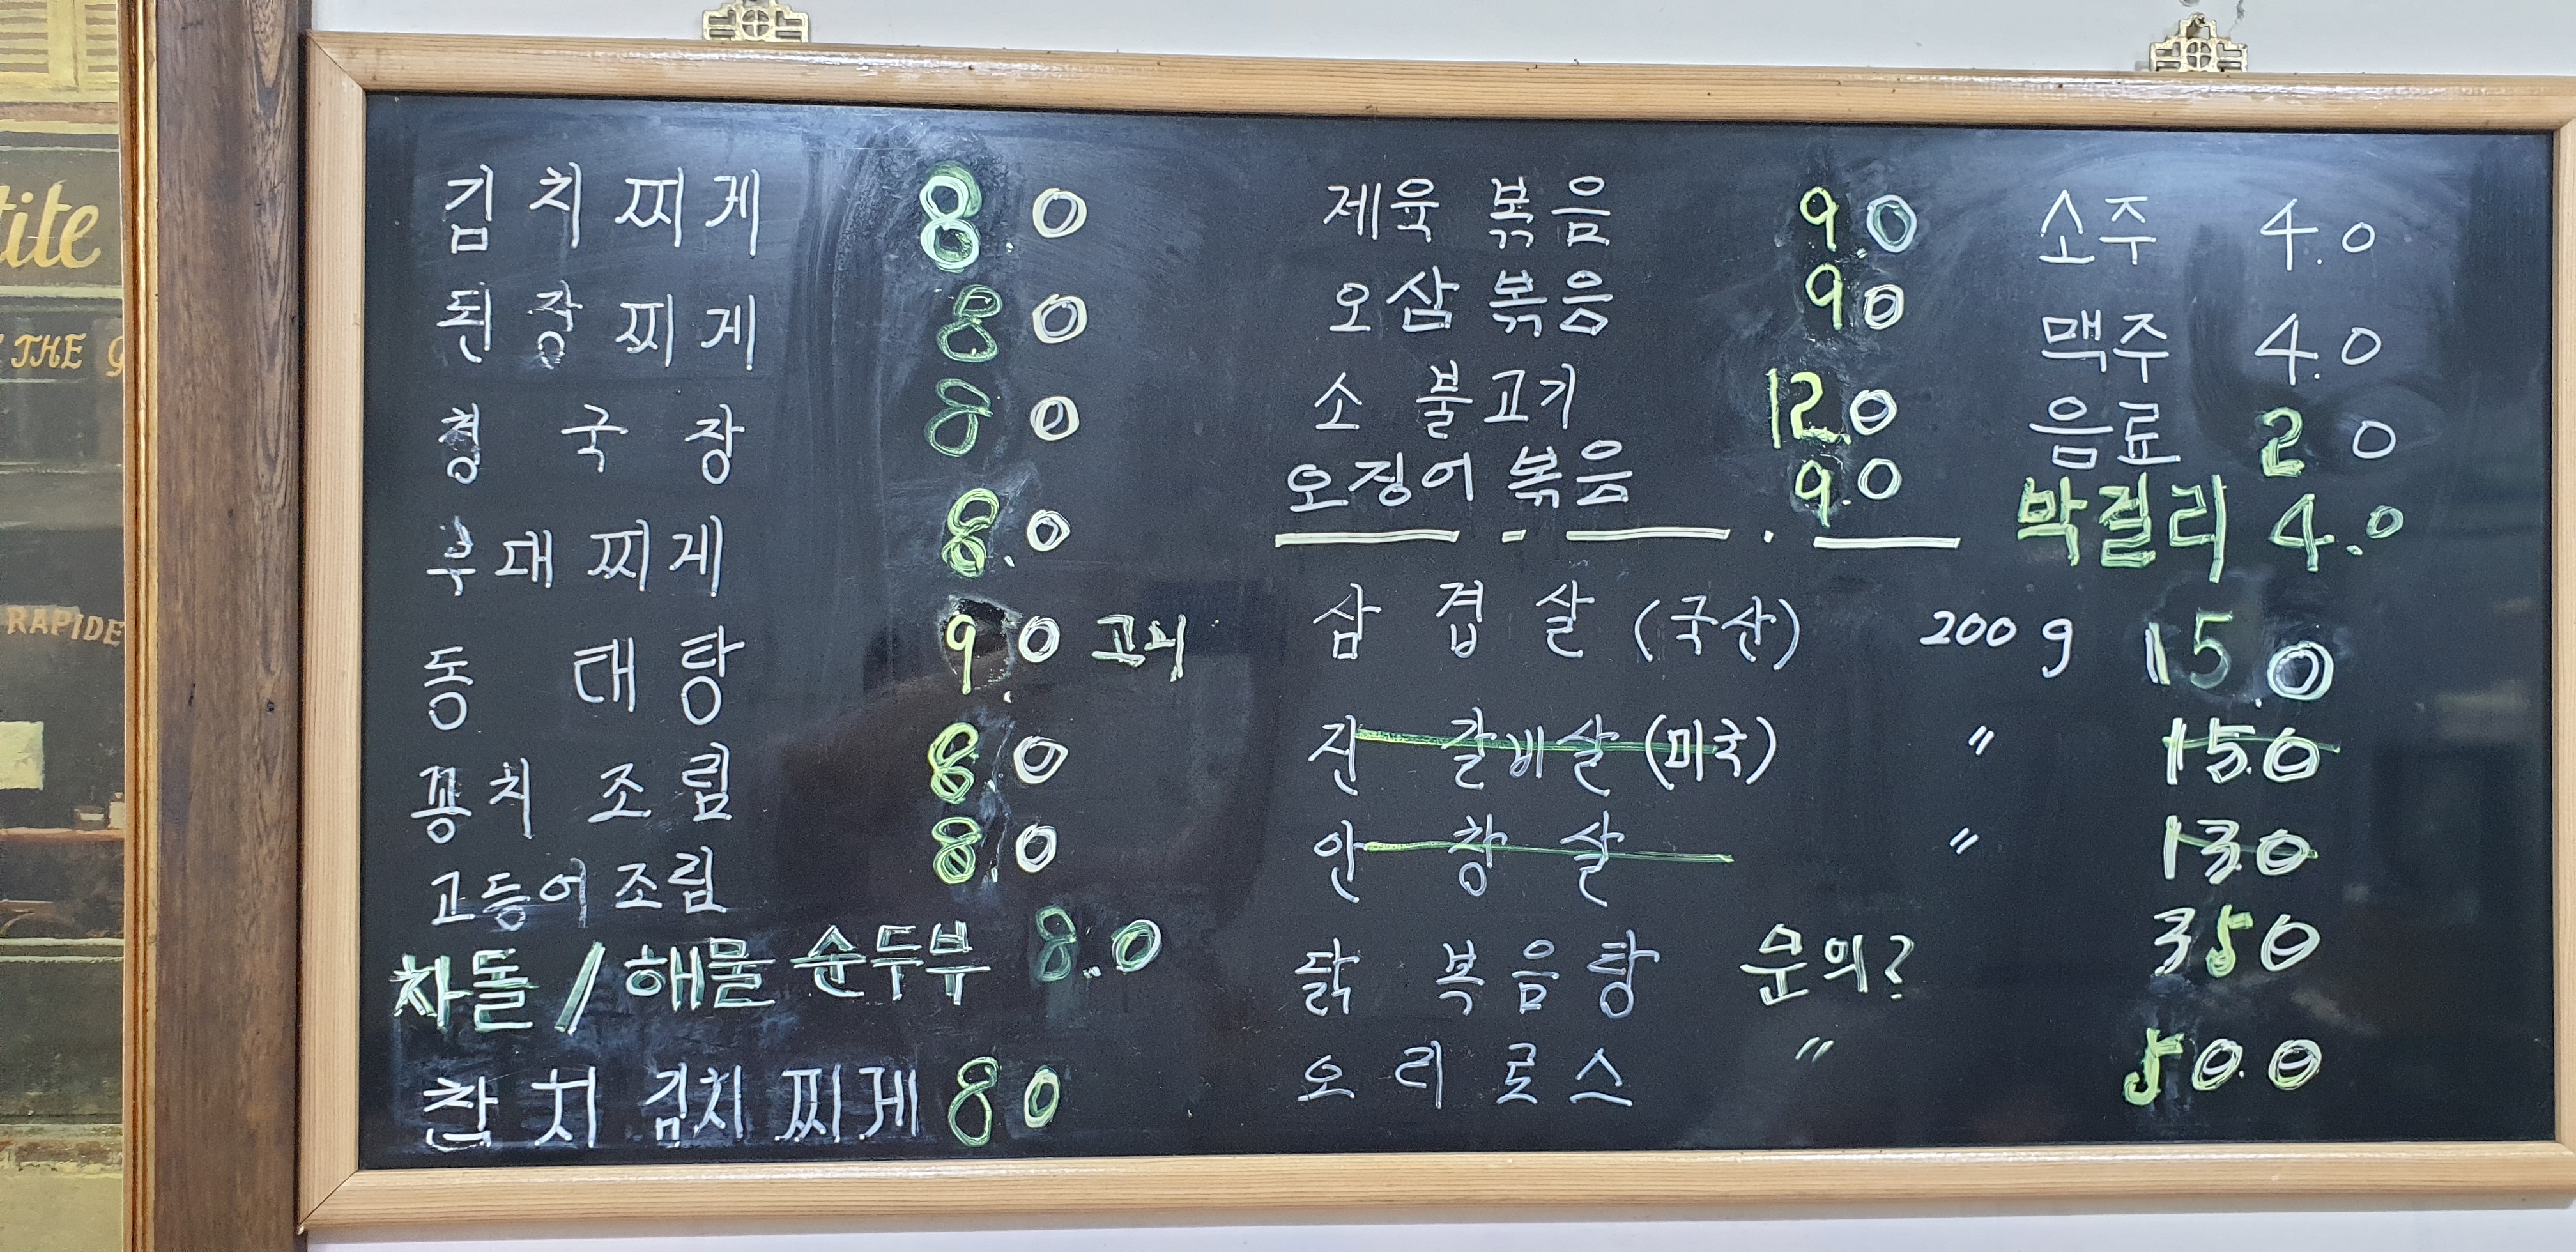 tite
THE
RAPIDE
김치찌게 8.0
된장찌게 8 0
청국장 8 0
부대찌게 8.0
동태탕 9.0 고니
꽁치 조림 8.0
고등어조림 8.0
차돌/해물 순두부 8.0
참치김치찌게 80
제육 볶음 9.0
오삼 볶음 9.0
소 불고기 12.0
오징어 볶음 9.0
삼겹살 (국산) 200g 15.0
진 갈비살 (미국) 〃 15.0
안창살 〃 13.0
닭 복음탕 문의? 350
오리로스 〃 50.0
소주 4.0
맥주 4.0
음료 2 0
막걸리 4.0